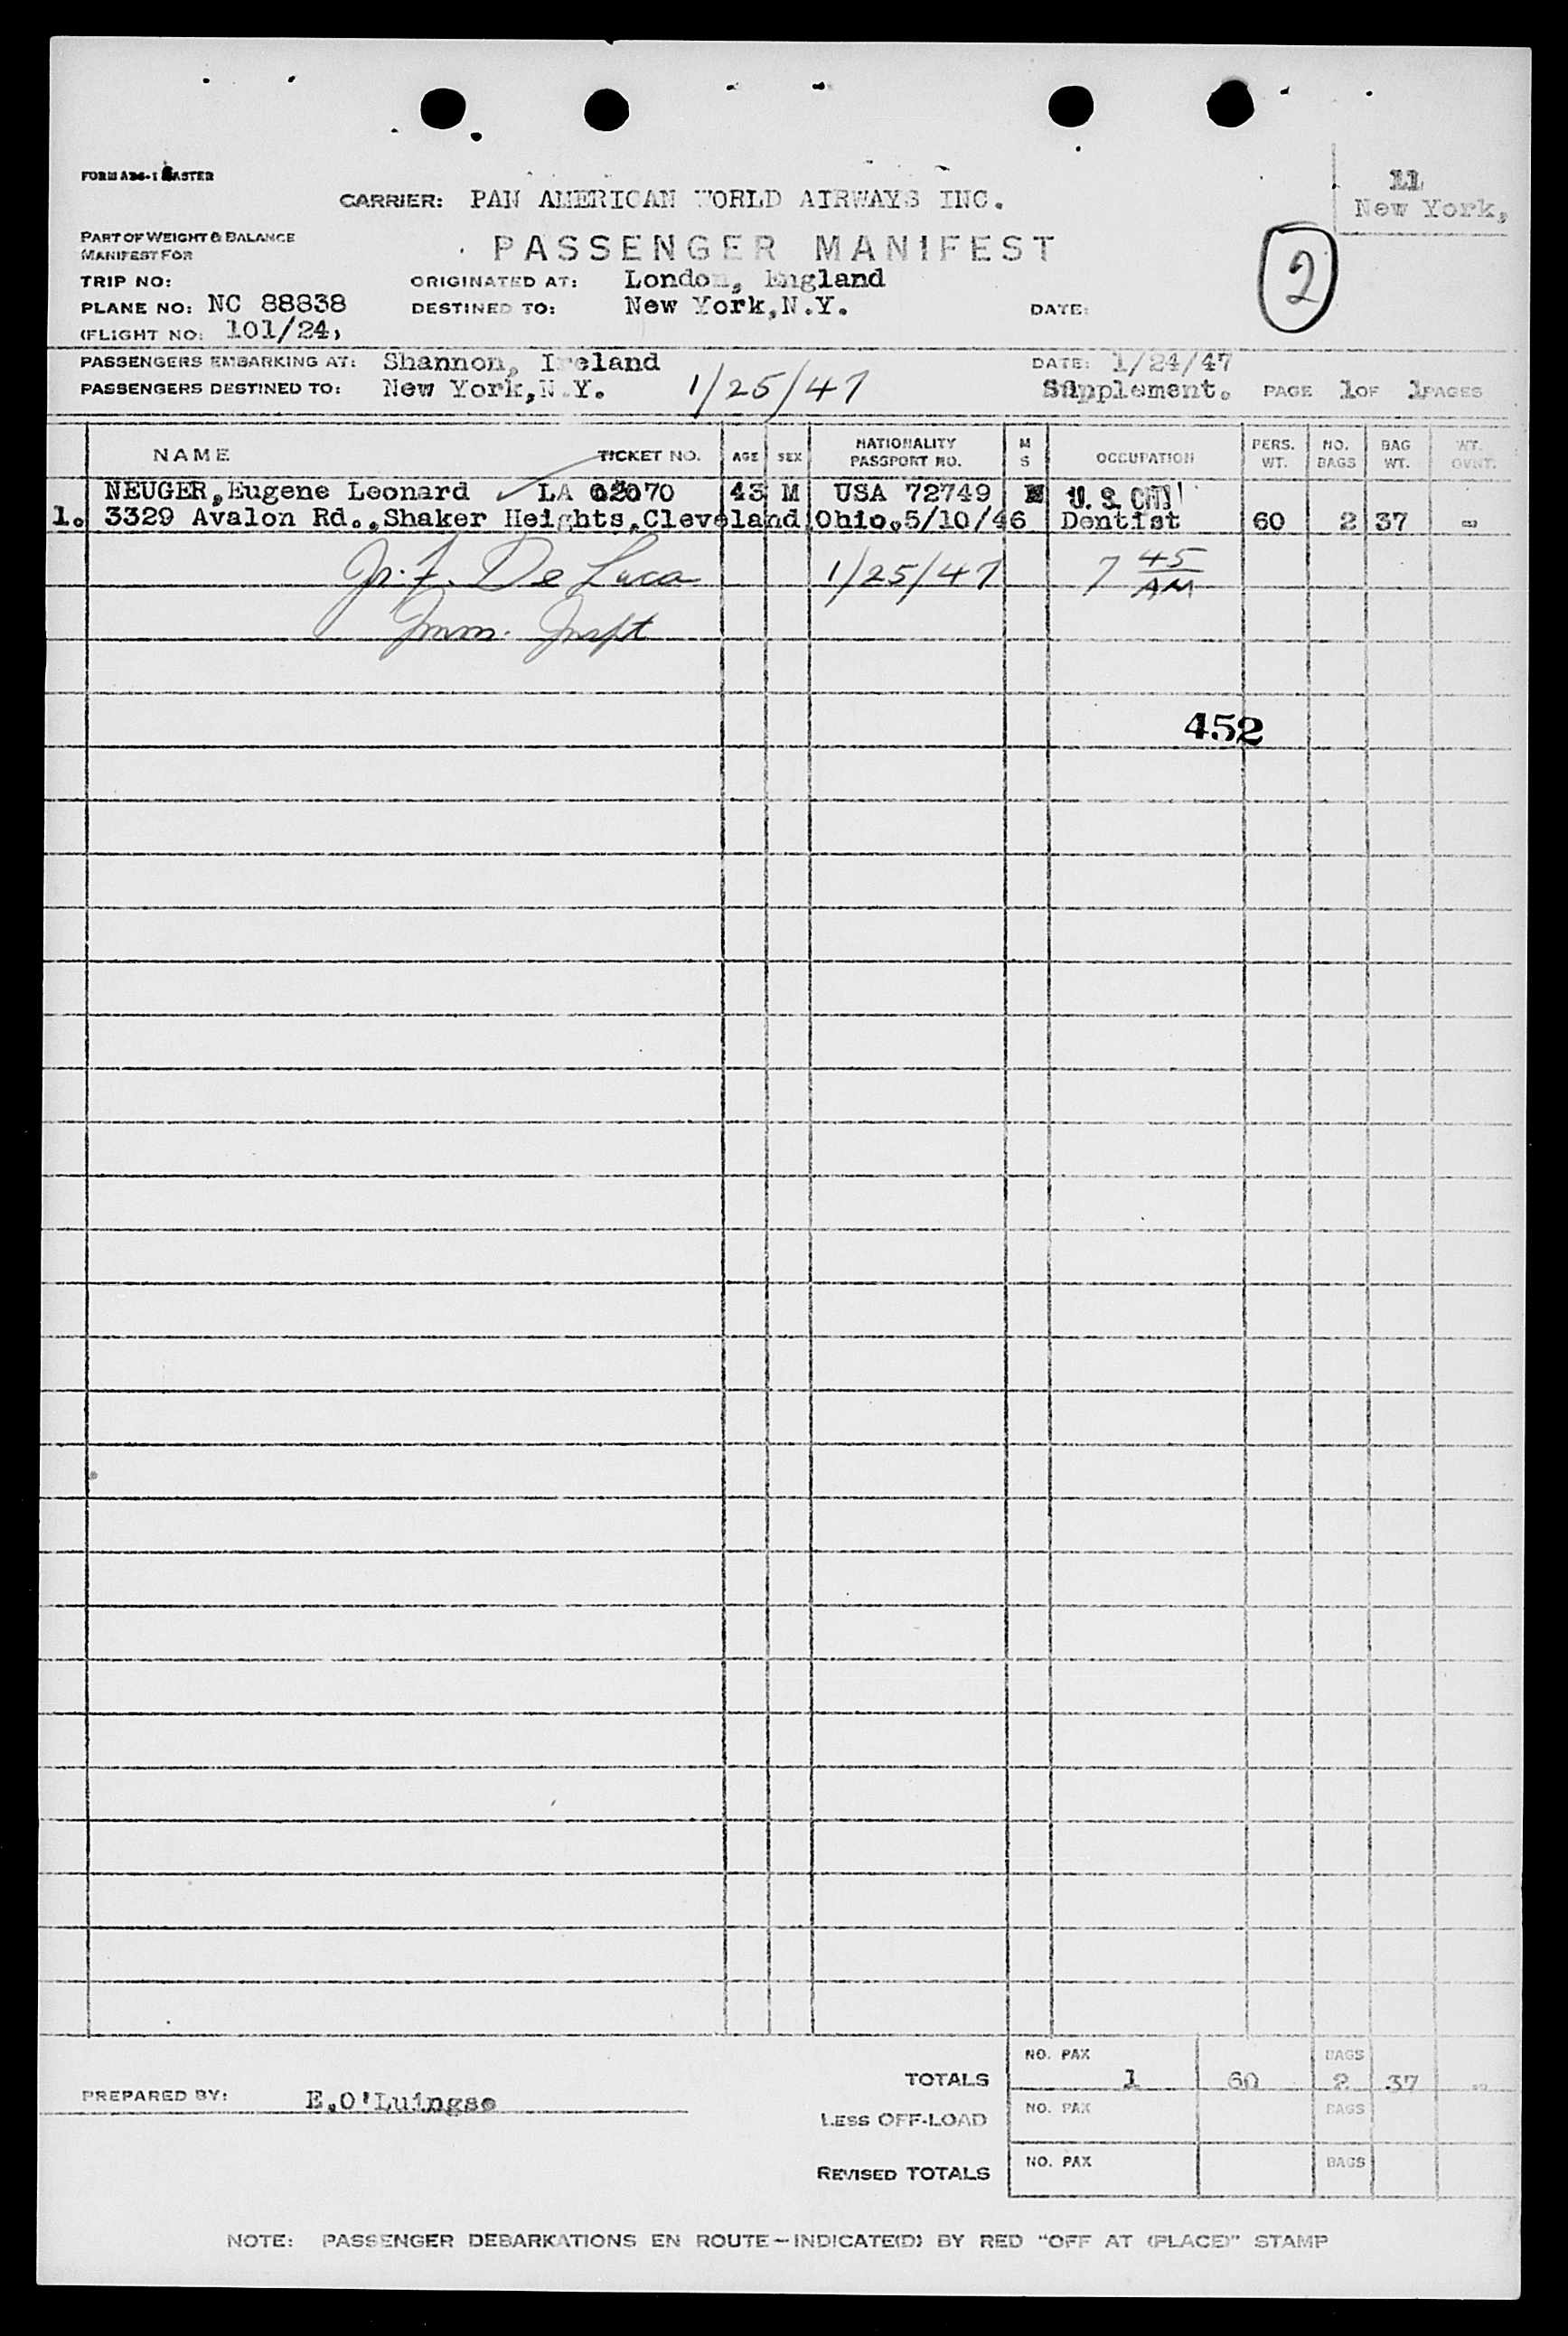 11
New York,
CARRIER: PAN AMERICAN WORLD AIRWAYS INC.
PART OF WEIGHT & BALANCE
MANIFEST FOR
PASSENGER MANIFEST
2
TRIP NO: ORIGINATED AT: London, England
PLANE NO: NC 88838 DESTINED TO: New York,N.Y. DATE:
(FLIGHT NO: 101/24)
PASSENGERS EMBARKING AT: Shannon, Ireland DATE: 1/24/47
PASSENGERS DESTINED TO: New York,N.Y. 1/25/47 Supplement. PAGE 1 OF 1 PAGES
NAME TICKET NO. AGE SEX NATIONALITY PASSPORT NO. M S OCCUPATION PERS. WT. NO. BAGS BAG WT. WT. OVNT.
NEUGER,Eugene Leonard LA 43 M USA 72749 U.S.
1. 3329 Avalon Rd.,Shaker Heights,Cleveland,Ohio,5/10/46 Dentist 60 2 37 -
De Luca 1/25/47 7 45 AM
Imm. Inspt
452
NO. PAX BAGS
TOTALS 1 60 2 37 -
PREPARED BY: E.O'Luingse
NO. PAX BAGS
LESS OFF-LOAD
NO. PAX BAGS
REVISED TOTALS
NOTE: PASSENGER DEBARKATIONS EN ROUTE—INDICATE(D) BY RED "OFF AT (PLACE)" STAMP